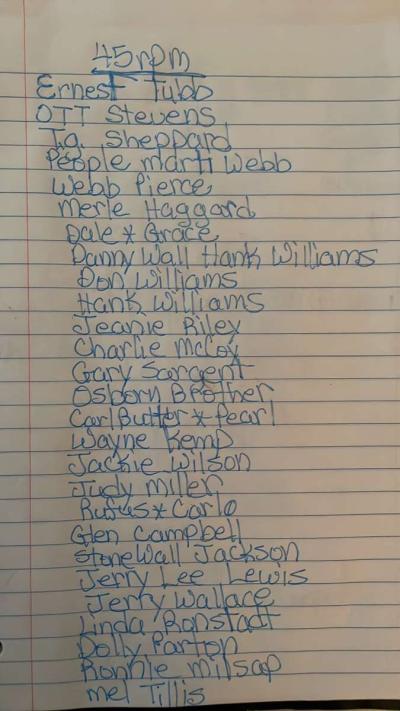 45rpm
Ernest Tubb
OTT Stevens
T.G. Sheppard
People Marti Webb
Webb Pierce
Merle Haggard
Dale * Grace
Danny Wall Hank Williams
Don Williams
Hank Williams
Jeanie Riley
Charlie McCoy
Gary Sargent
Osborn Brother
Carl Butter * Pearl
Wayne Kemp
Jackie Wilson
Judy Miller
Rufus * Carlo
Glen Campbell
StoneWall Jackson
Jerry Lee Lewis
Jerry Wallace
Linda Ronstadt
Dolly Parton
Ronnie Milsap
Mel Tillis